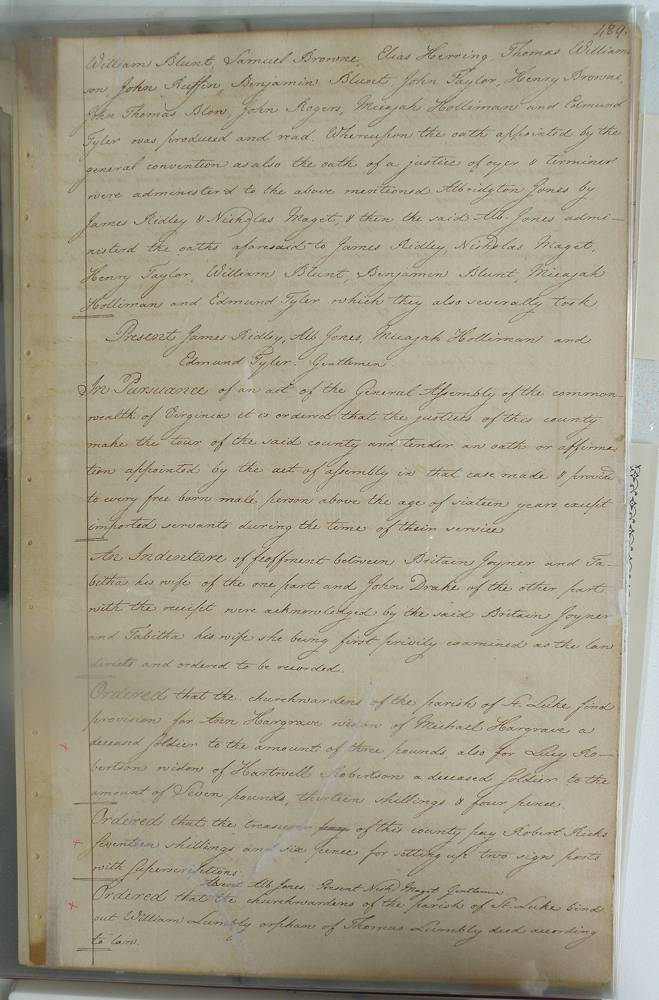 489.
William Blunt, Samuel Browne, Elias Herring, Thomas William
son, John Ruffin, Benjamin Blunt, John Taylor, Henry Browne,
John Thomas Blow, John Rogers, Micajah Holliman and Edmund
Tyler was produced and read. Whereupon the oath appointed by the
general convention as also the oath of a justice of oyer & terminer
were administer'd to the above mentioned Albridgton Jones by
James Ridley & Nicholas Maget, & then the said Alb. Jones admi-
nisterd the oaths aforesaid to James Ridley, Nicholas Maget,
Henry Taylor, William Blunt, Benjamin Blunt, Micajah
Holliman and Edmund Tyler which they also severally took
Present James Ridley, Alb. Jones, Micajah Holliman and
Edmund Tyler. Gentlemen
In Pursuance of an act of the General Assembly of the common-
wealth of Virginia it is ordered that the justices of this county
make the tour of the said county and tender an oath or affirma
tion appointed by the act of assembly in that case made & provid
to every free born male person above the age of sixteen years except
imported servants during the time of their service
An Indenture of feoffment between Britain Joyner and Ta-
bitha his wife of the one part and John Drake of the other part
with the receipt were acknowledged by the said Britain Joyner
and Tabitha his wife she being first privily examined as the law
directs and ordered to be recorded.
Ordered that the churchwardens of the parish of St. Luke find
provision for Ann Hargrave widow of Michael Hargrave a
deceased soldier to the amount of three pounds, also for Lucy Ro-
bertson widow of Hartwell Robertson a deceased soldier to the
amount of Seven pounds, thirteen shillings & four pence
Ordered that the treasurer of this county pay Robert Ricks
Seventeen shillings and six pence for setting up two sign posts
with superscriptions
Absent Alb. Jones. Present Nichs. Maget Gentlemen
Ordered that the churchwardens of the parish of St. Luke bind
out William Lumbly orphan of Thomas Lumbly decd according
to law.